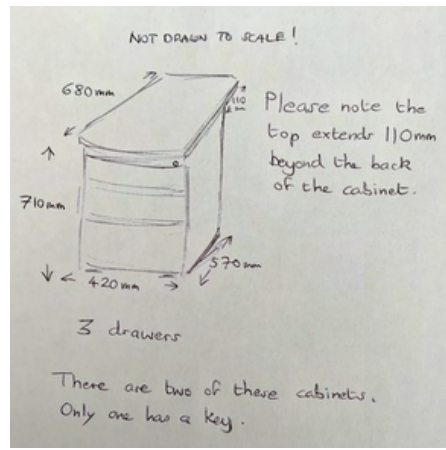 NOT DRAWN TO SCALE!
680mm
110
mm
Please note the
top extends 110mm
beyond the back
of the cabinet.
710mm
570mm
420mm
3 drawers
There are two of these cabinets.
Only one has a key.